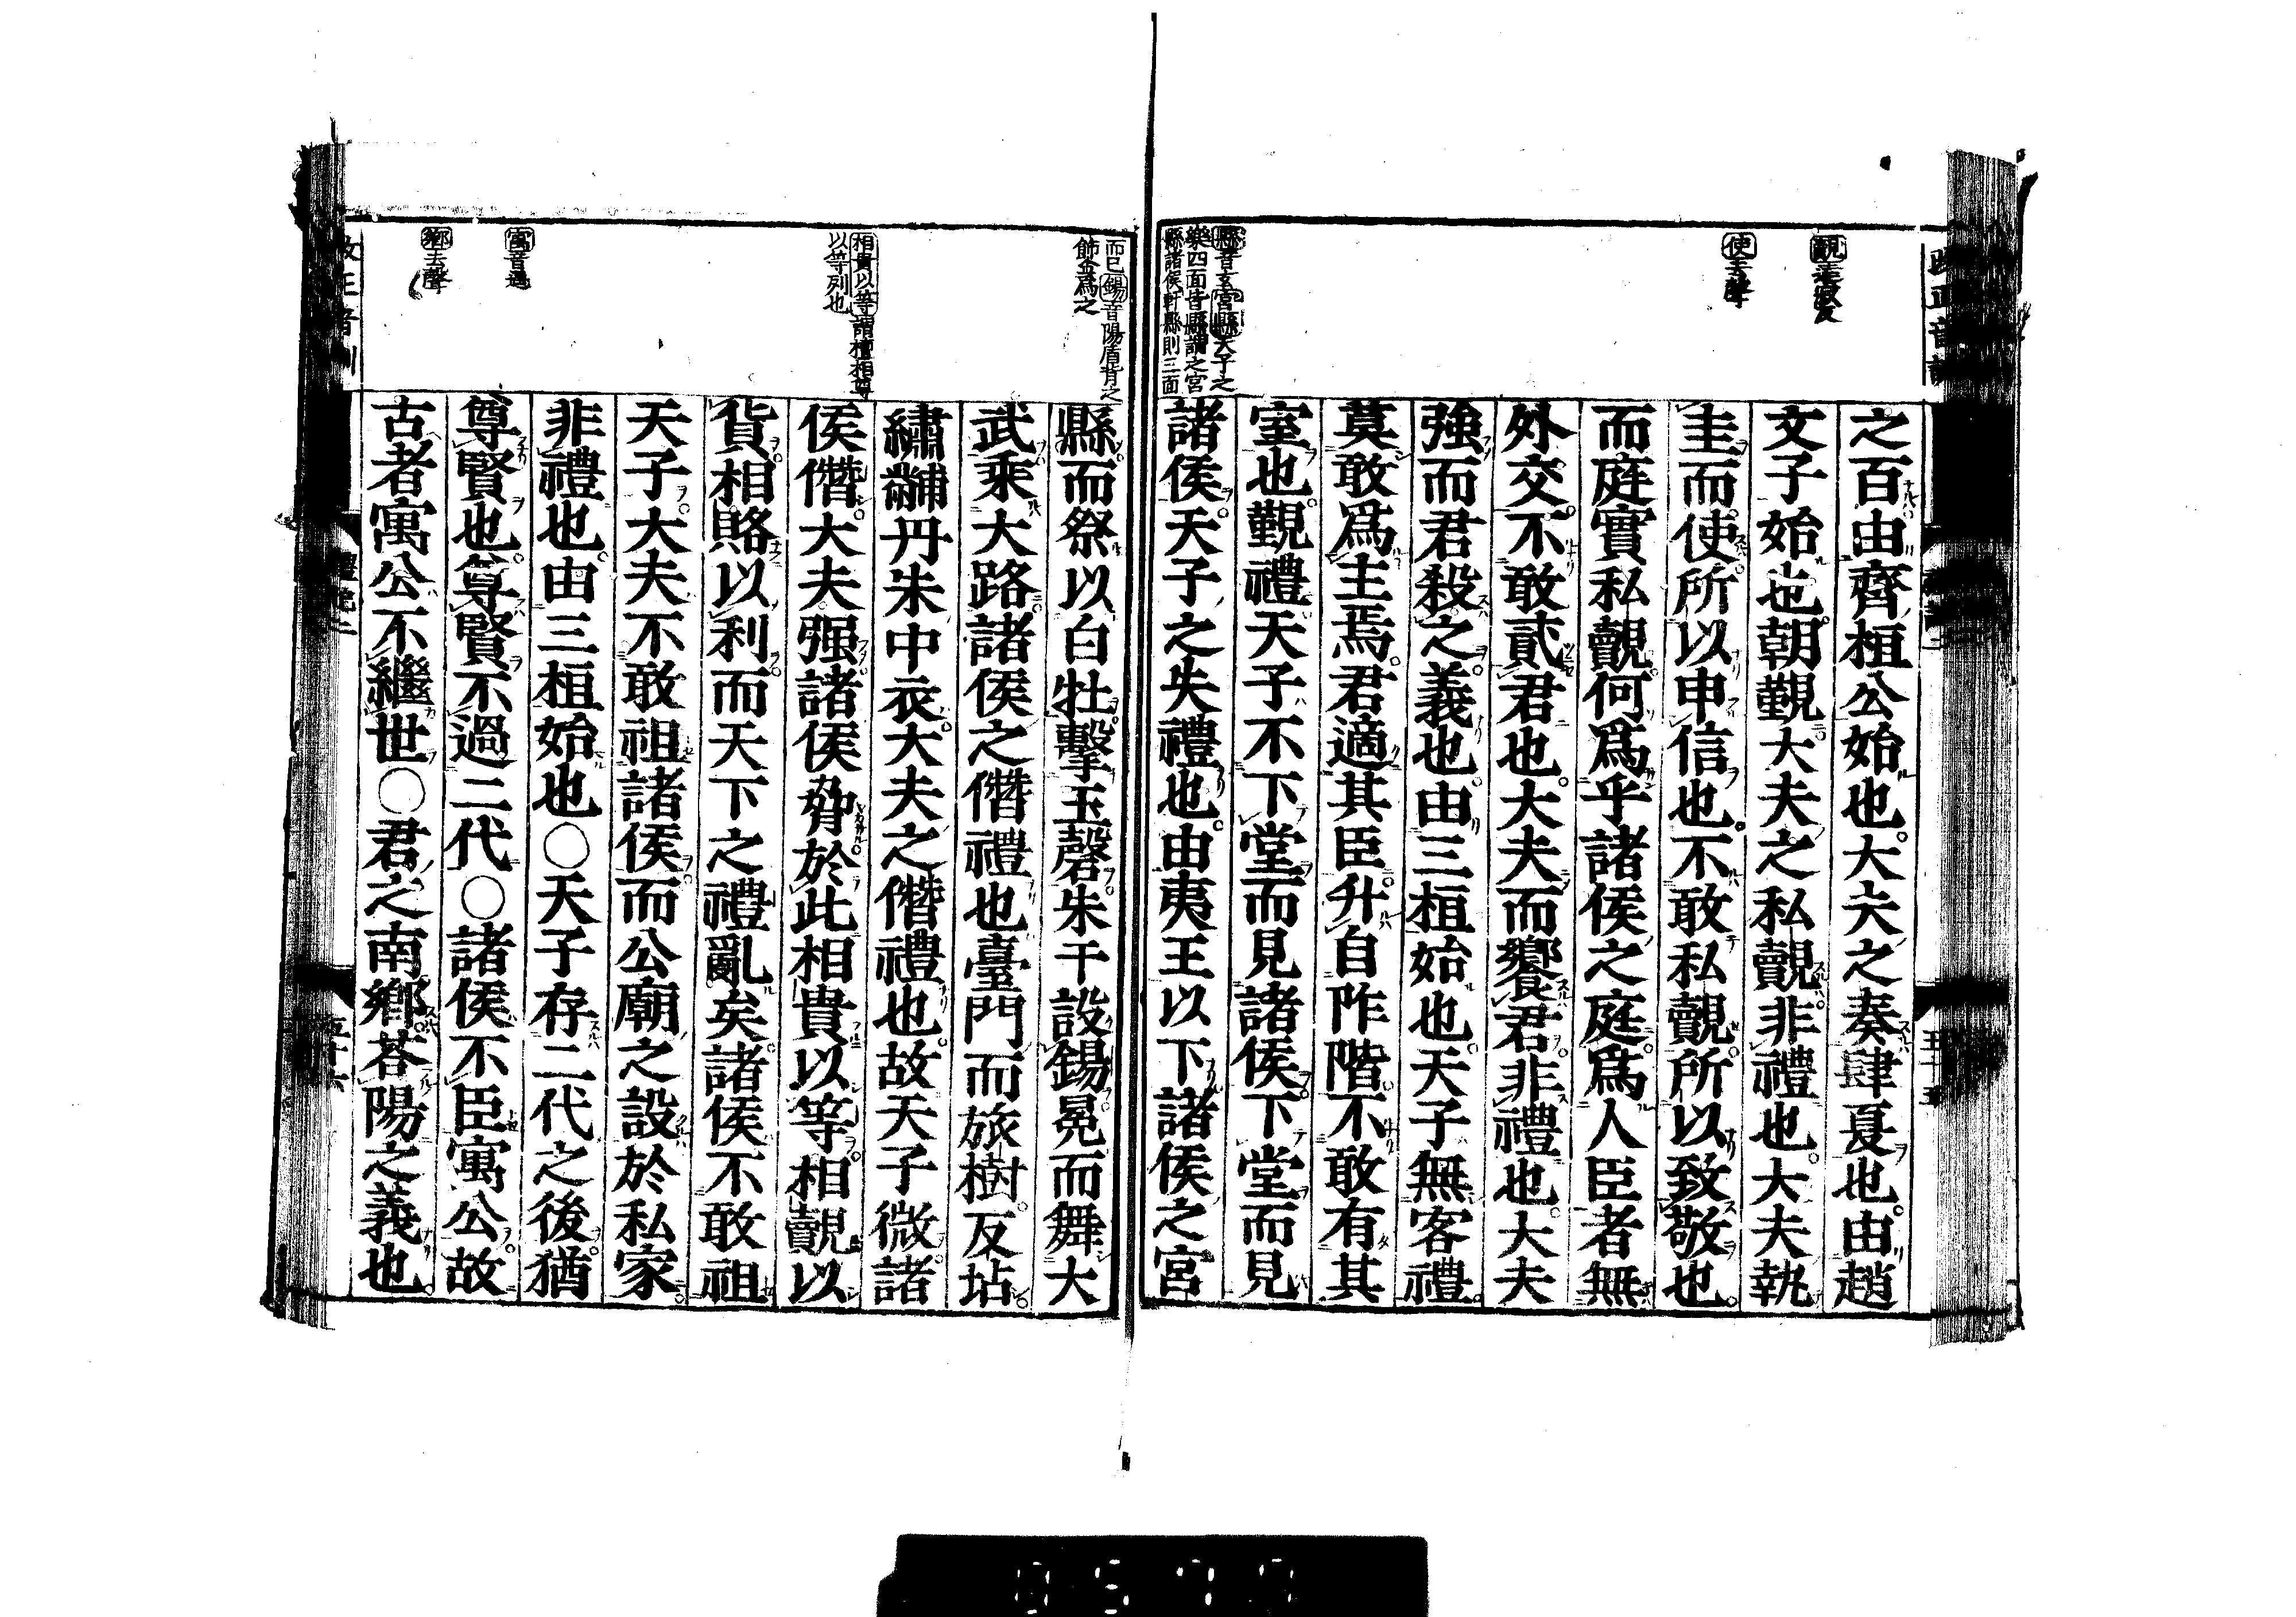 覿
使去聲
縣音玄宮縣天子之
樂四面皆縣謂之宮
縣諸侯軒縣則三面
之百由齊桓公始也大夫之奏肆夏也由趙
文子始也朝覲大夫之私覿非禮也大夫執
圭而使所以申信也不敢私覿所以致敬也
而庭實私覿何爲乎諸侯之庭爲人臣者無
外交不敢貳君也大夫而饗君非禮也大夫
強而君殺之義也由三桓始也天子無客禮
莫敢爲主焉君適其臣升自阼階不敢有其
室也覲禮天子不下堂而見諸侯下堂而見
諸侯天子之失禮也由夷王以下諸侯之宮
而已錫音陽盾背之
飾金爲之
相貴以等謂擅相尊
以等列也
寓音遇
鄉去聲
縣而祭以白牡擊玉磬朱干設錫冕而舞大
武乘大路諸侯之僭禮也臺門而旅樹反坫
繡黼丹朱中衣大夫之僭禮也故天子微諸
侯僭大夫强諸侯脅於此相貴以等相覿以
貨相賂以利而天下之禮亂矣諸侯不敢祖
天子大夫不敢祖諸侯而公廟之設於私家
非禮也由三桓始也○天子存二代之後猶
尊賢也尊賢不過二代○諸侯不臣寓公故
古者寓公不繼世○君之南鄉荅陽之義也